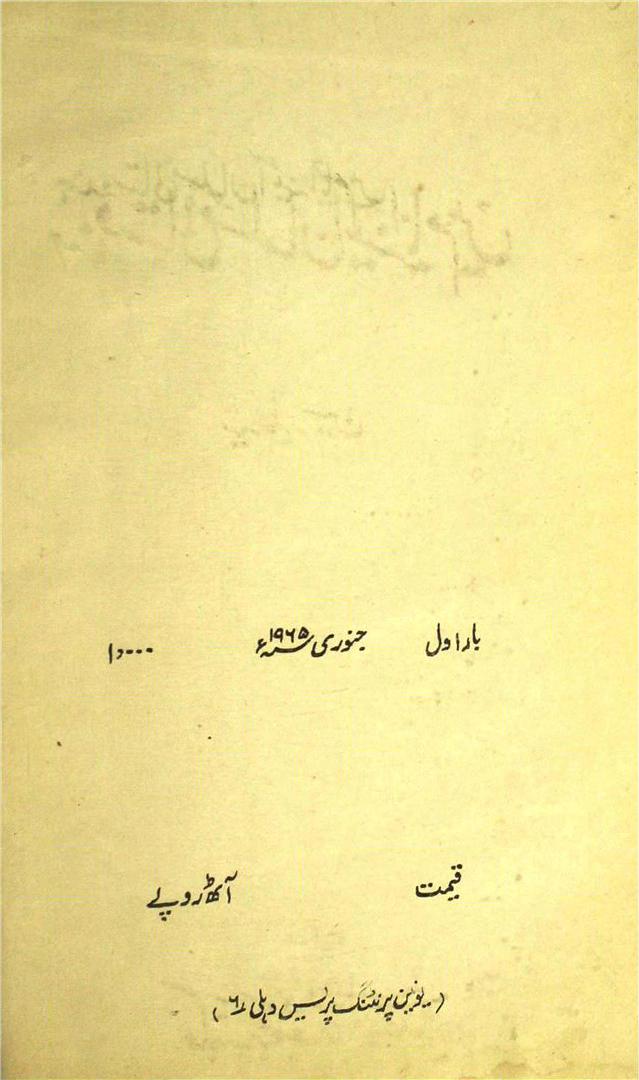 بار اول جنوری ۱۹۶۵ء ۱,۰۰۰
قیمت آٹھ روپے
(یونین پرنٹنگ پریس دہلی ۶)